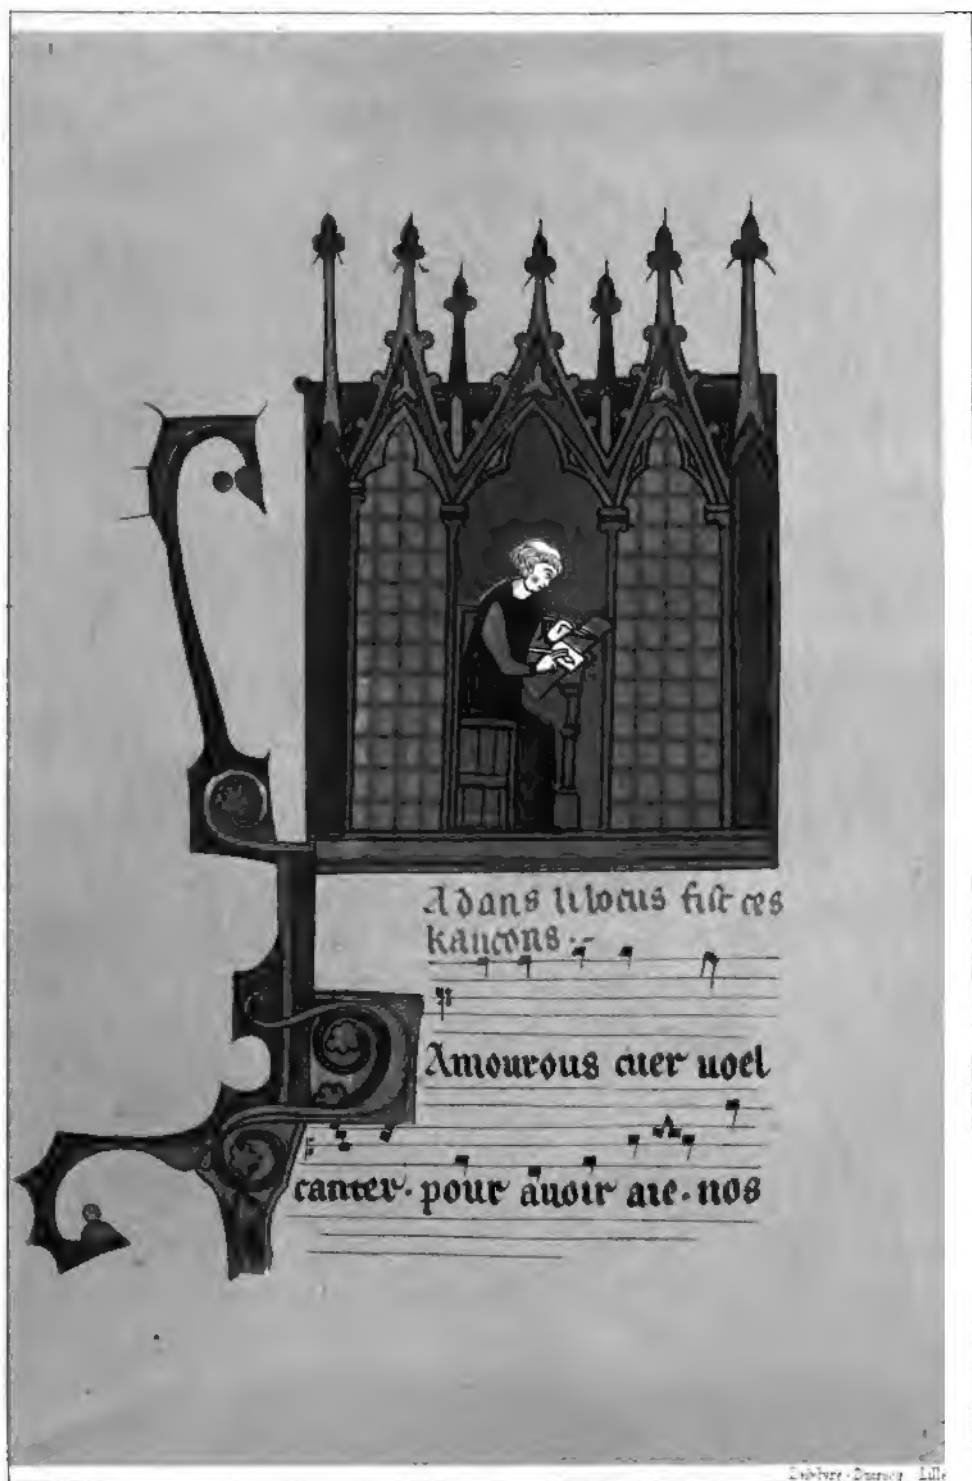 Adans li bocus fist ces
kancons :~
Amourous cuer uoel
canter . pour auoir aie . nos
Lille